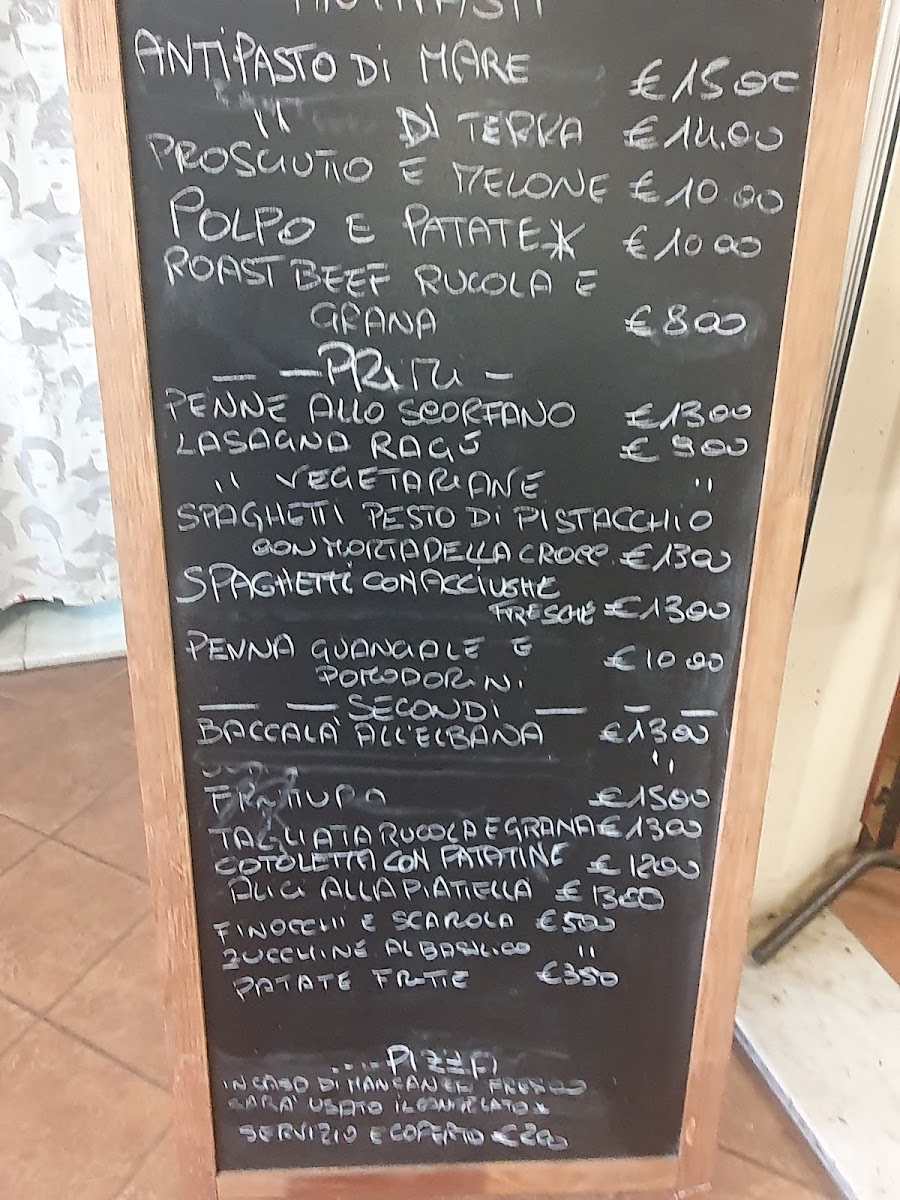 ANTIPASTI
ANTIPASTO Di MARE €15.00
" Di TERRA €14.00
PROSCIUTTO E MELONE €10.00
POLPO E PATATE* €10 00
ROAST BEEF RUCOLA E
GRANA €8 00
— — PRiMi —
PENNE ALLO SCORFANO €13 00
LASAGNA RAGÚ € 9 00
" VEGETARIANE "
SPAGHETTI PESTO Di PiSTACCHIO
CON MORTADELLA CROCC. €13 00
SPAGHETTI CON ACCIUGHE
FRESCHE €13 00
PENNA GUANCIALE E €10 00
POMODORiNi
— — SECONDI — — —
BACCALA' ALL'ELBANA €13 00
"
FRITTURA €15 00
TAGLIATA RUCOLA E GRANA €13 00
COTOLETTA CON PATATINE €12 00
ALICI ALLA PIATELLA €13 00
FINOCCHI E SCAROLA €5 00
ZUCCHINE AL BASILICO "
PATATE FRITTE €3 50
....PIZZA
IN CASO DI MANCANZA FRESCO
SARA' USATO IL CONGELATO*
SERVIZIO E COPERTO €2 00